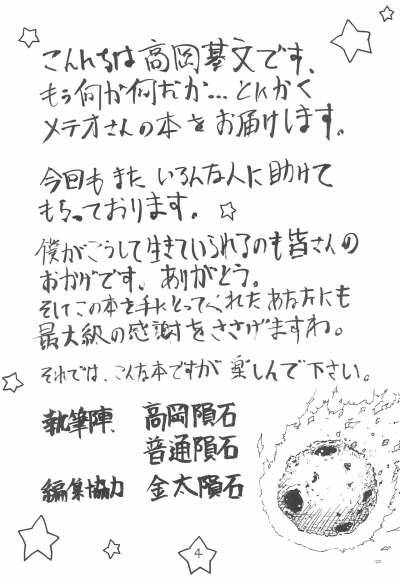 こんにちは高岡基文です、
もう何が何だか…とにかく
メテオさんの本をお届けします。
今回もまた いろんな人に助けて
もらっております。☆
僕がこうして生きていられるのも皆さんの
おかげです。ありがとう。
そしてこの本を手にとってくれたあなたにも
最大級の感謝をささげますわ。
それでは、こんな本ですが 楽しんで下さい。
執筆陣、 高岡隕石
普通隕石
編集協力 金太隕石
4